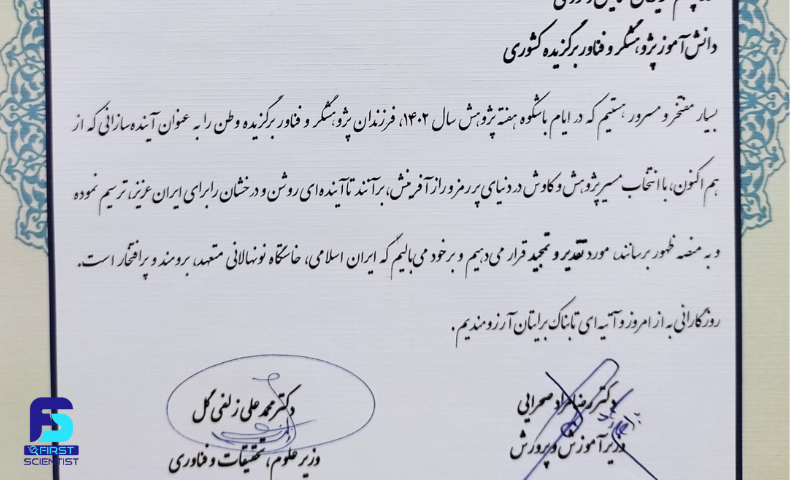 دانش‌آموز پژوهشگر و فناور برگزیده کشوری
بسیار مفتخر و مسرور هستیم که در ایام باشکوه هفته پژوهش سال ۱۴۰۲، فرزندان پژوهشگر و فناور برگزیده وطن را به عنوان آینده‌سازانی که از
هم اکنون، با انتخاب مسیر پژوهش و کاوش در دنیای پر رمز و راز آفرینش، برآنند تا آینده‌ای روشن و درخشان را برای ایران عزیز، ترسیم نموده
و به منصه ظهور برسانند، مورد تقدیر و تمجید قرار می‌دهیم و بر خود می‌بالیم که ایران اسلامی، خاستگاه نونهالانی متعهد، برومند و پرافتخار است.
روزگارانی به از امروز و آتیه‌ای تابناک برایتان آرزومندیم.
دکتر رضامراد صحرایی
وزیر آموزش و پرورش
دکتر محمدعلی زلفی گل
وزیر علوم، تحقیقات و فناوری
FS
FIRST
SCIENTIST